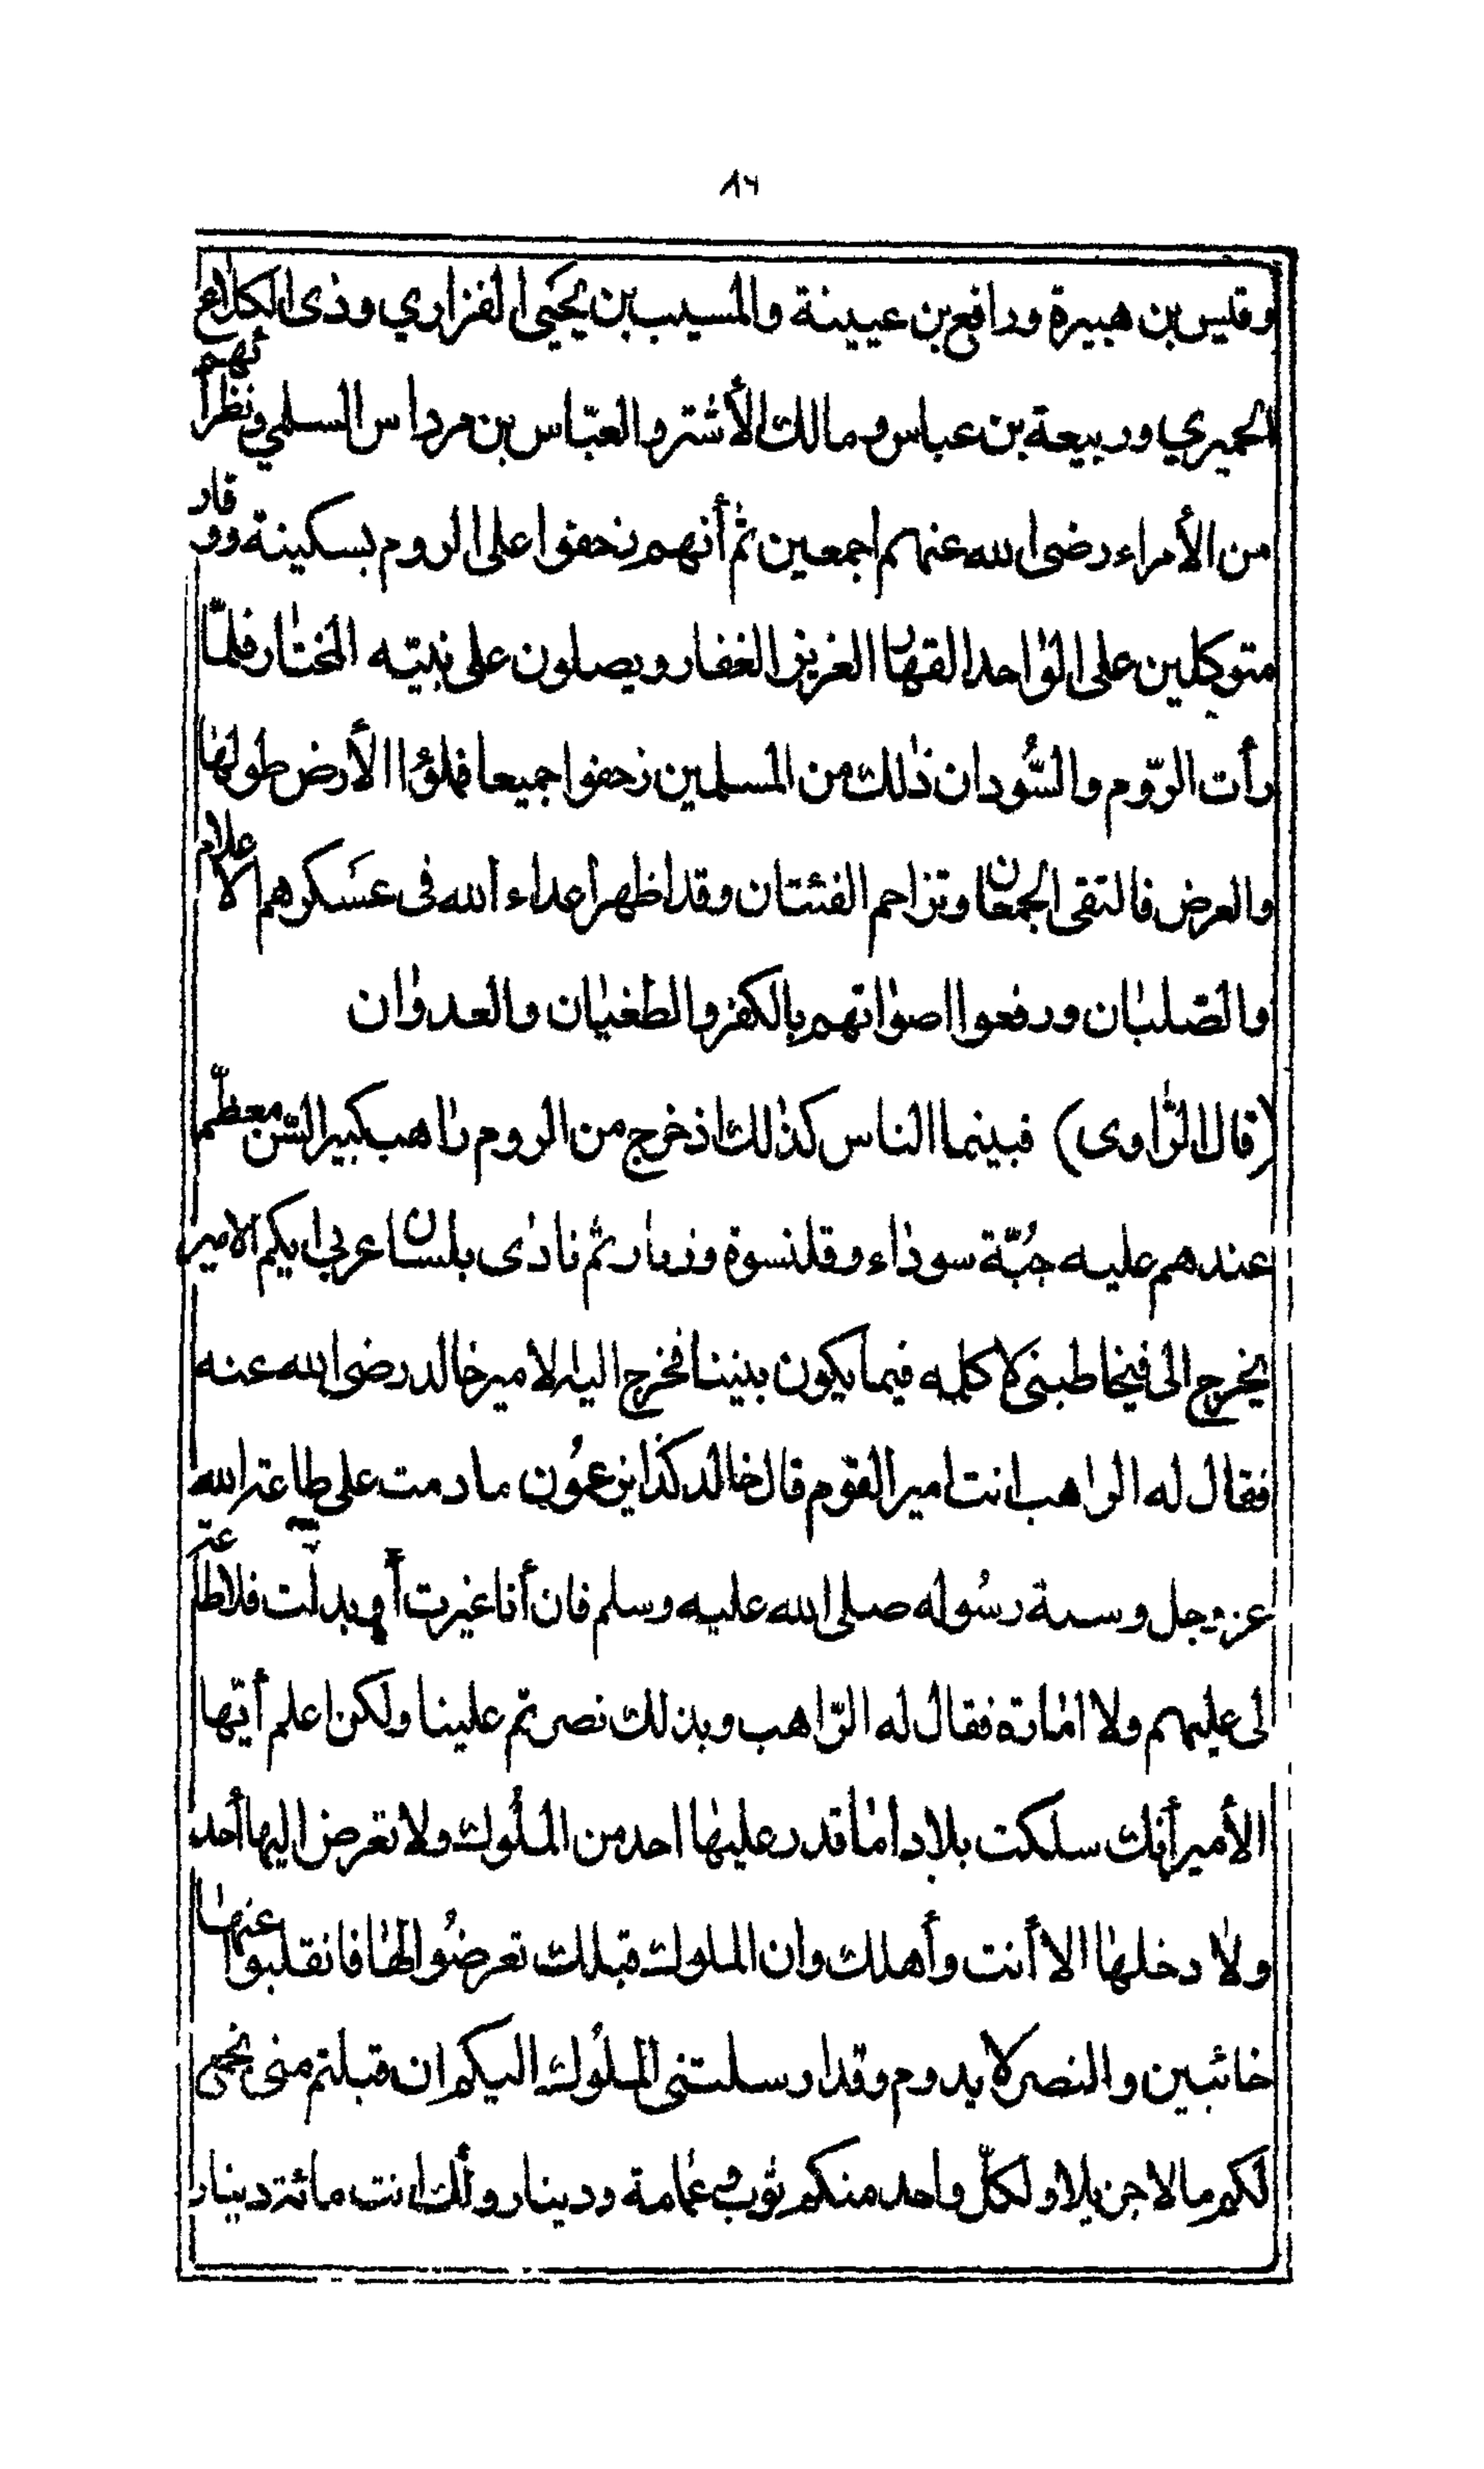 ٨٢
وقيس بن هبيرة ورافع بن عيينة والمسيب بن يحيى الفزاري وذى الكلاع
الحميري وربيعة بن عباس ومالك الأشتر والعبّاس بن مرداس السلمي ونظرائهم
من الأمراء رضى الله عنهم اجمعين ثم أنهم زحفوا على الروم بسكينة ووقار
متوكلين على الواحد القهار العزيز الغفار ويصلون على نبيّه المختار فلمّا
رأت الرّوم والسّودان ذلك من المسلمين زحفوا جميعا فملؤا الأرض طولها
والعرض فالتقى الجمعان وتزاحم الفئتان وقد اظهر اعداء الله فى عسكرهم الاعلام
والصّلبان ورفعوا اصواتهم بالكفر والطغيان والعدوان
(قال الرّاوى) فبينما الناس كذلك اذ خرج من الروم راهب كبير السّن معظّم
عندهم عليه جُبّة سوداء وقلنسوة وزنار ثم نادى بلسان عربي ايكم الامير
يخرج الى فيخاطبنى لاكلمه فيما يكون بيننا فخرج اليه الامير خالد رضى الله عنه
فقال له الراهب انت امير القوم قال خالد كذا يزعمُون ما دمت على طاعة الله
عز وجل وسنة رسُوله صلى الله عليه وسلم فان أنا غيرت أو بدلت فلا طاعة
لى عليهم ولا امارة فقال له الرّاهب وبذلك نصرتم علينا ولكن اعلم أيّها
الأمير أنك سلكت بلادا ما قدر عليها احد من الملُوك ولا تعرض اليها أحد
ولا دخلها الا أنت وأهلك وان الملوك قبلك تعرضُوا لها فانقلبوا عنها
خائبين والنصر لا يدوم وقد ارسلتنى الملُوك اليكم ان قبلتم منى نجمى
لكم مالا جزيلا ولكلّ واحد منكم ثوب وعمامة ودينار ولك انت مائة دينار